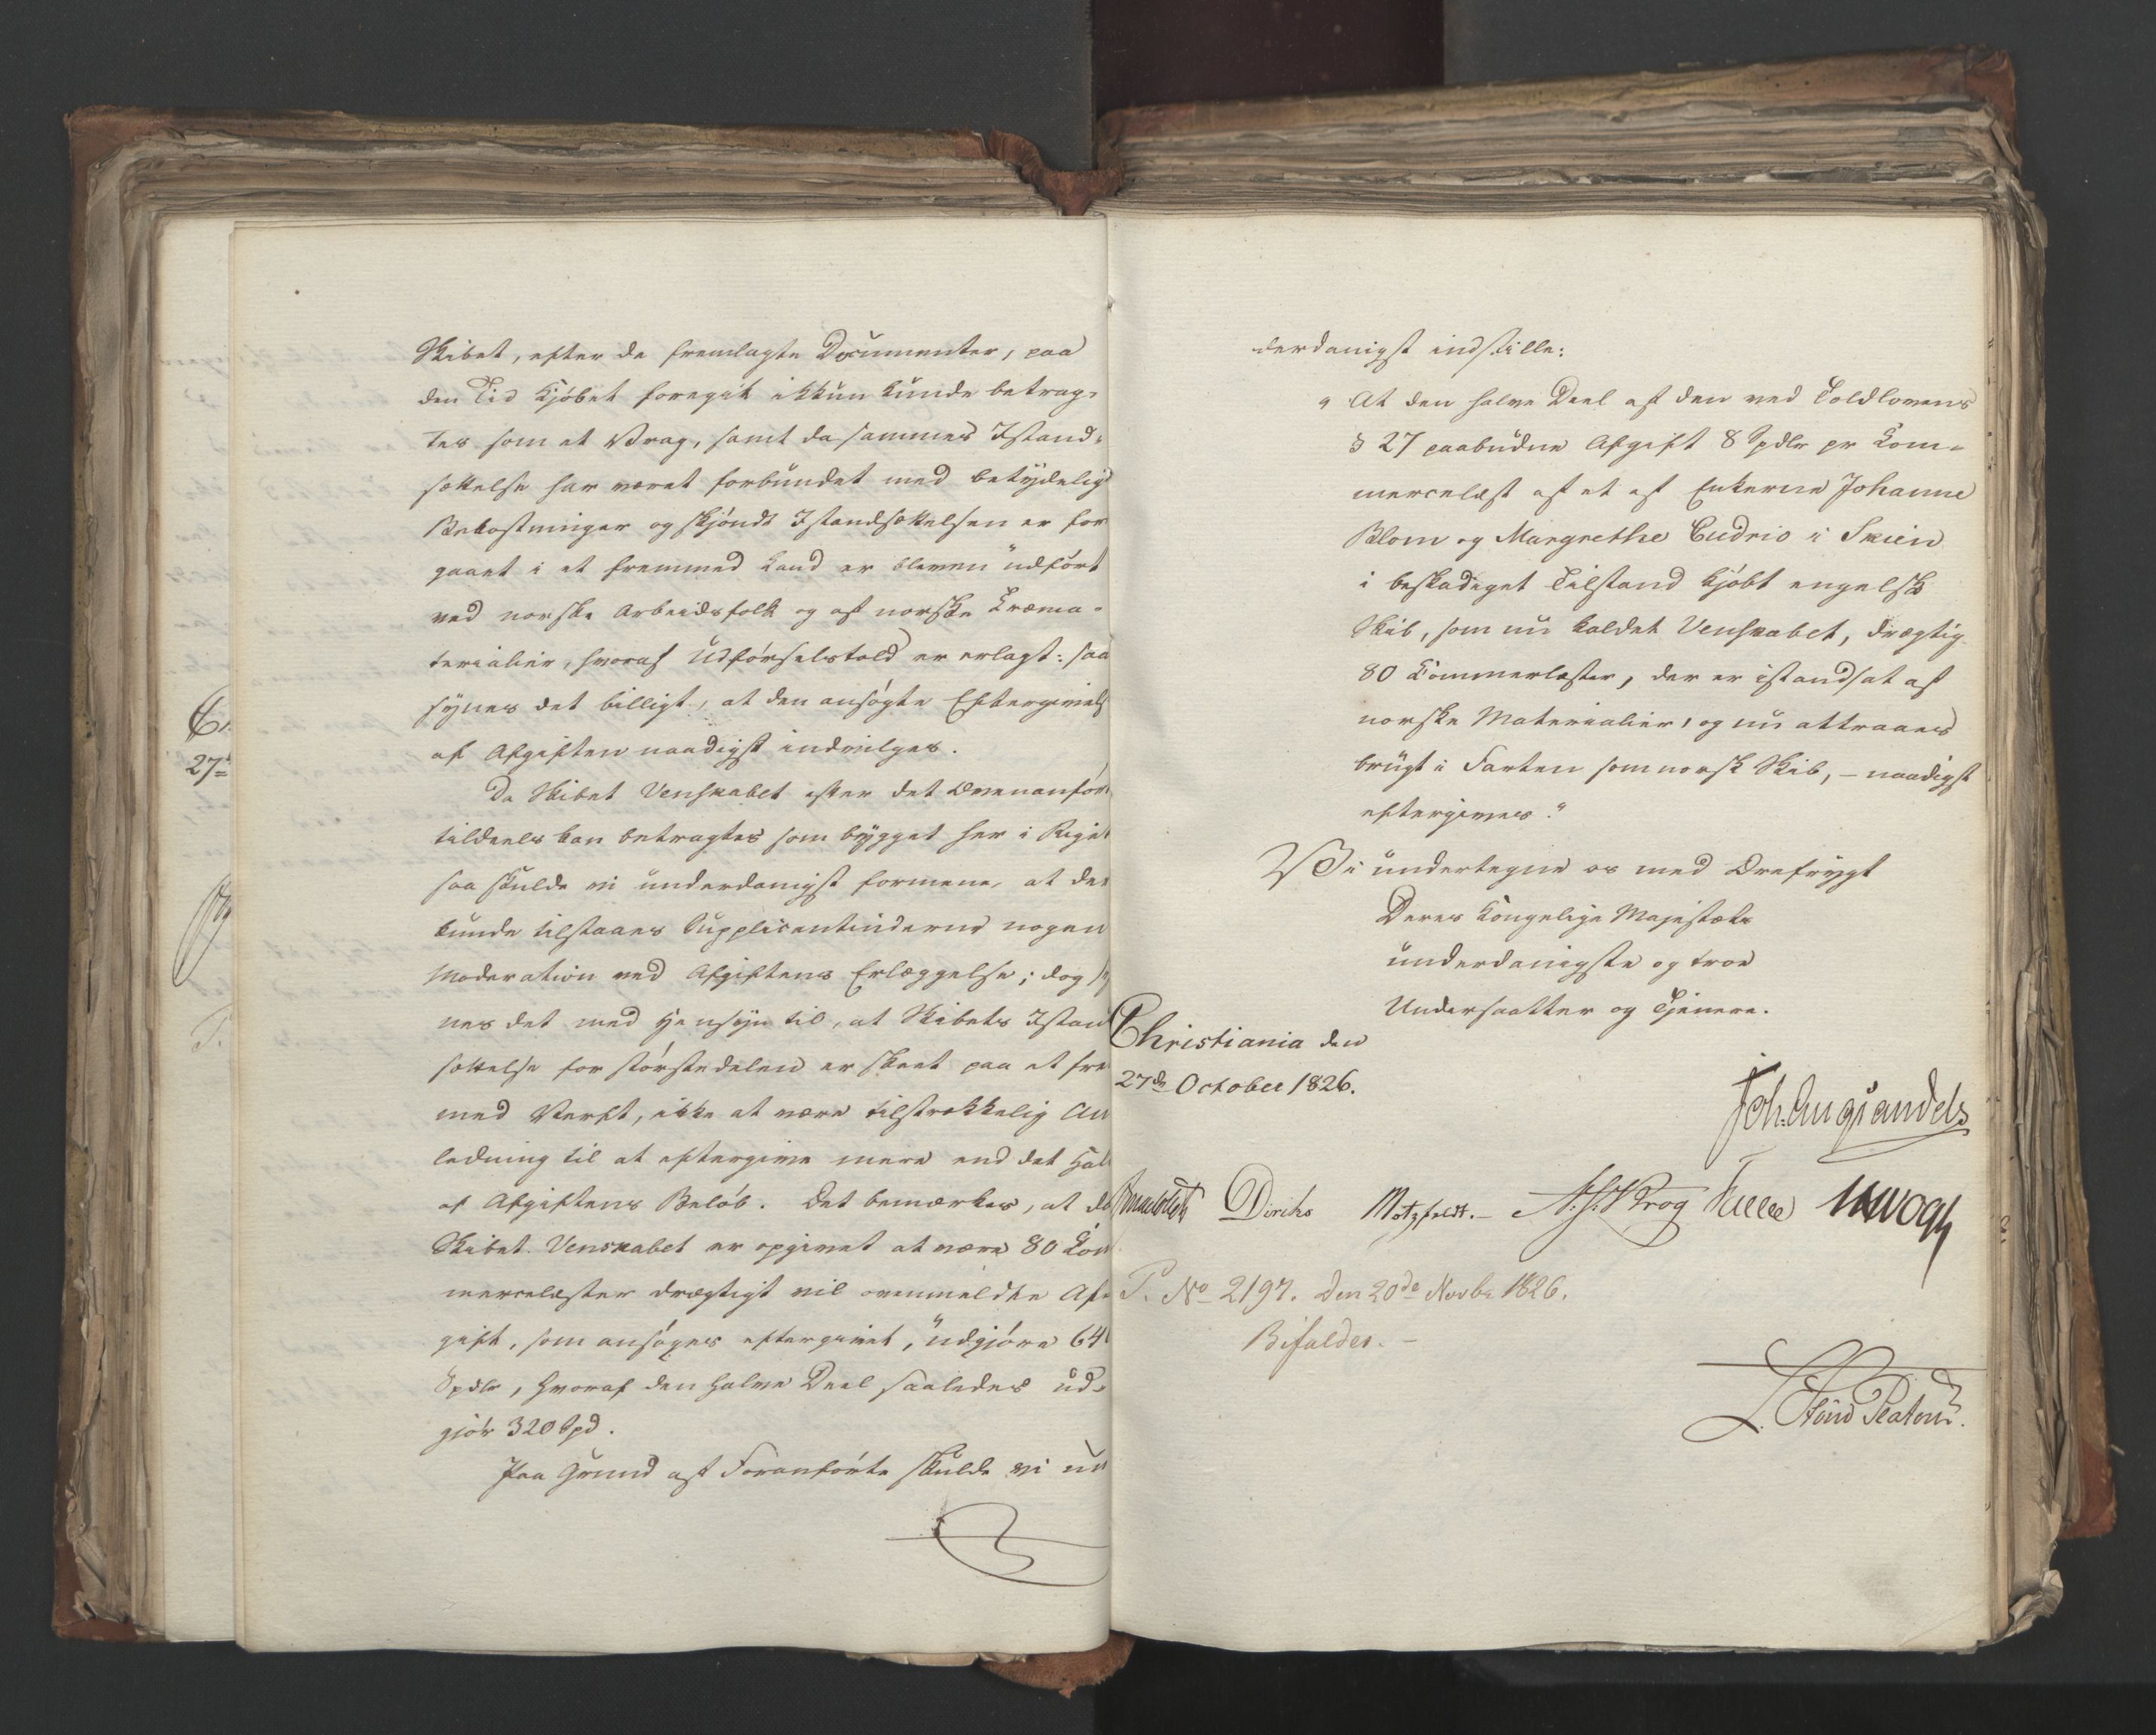 Skibet, efter de fremlagte Documenter, paa
den Tid Kjöbet foregik ikkun kunde betrag-
tes som et Vrag, samt da sammes Istand-
sættelse har været forbundet med betydelig
Bekostninger og skjöndt Istandsættelsen er for
gaaet i et fremmed Land er bleven udfört
ved norske Arbeidsfolk og af norske Træma-
terialier, hvoraf Udförselstold er erlagt: saa
synes det billigt, at den ansögte Eftergivels
af Afgiften naadigst indvilges.
Da Skibet Venskabet efter det Ovenanför
tildeels kan betragtes som bygget her i Riget
saa skulde vi underdanigst formene, at der
kunde tilstaaes Supplicantinderne nogen
Moderation ved Afgiftens Erlæggelse; dog sy
nes det med Hensyn til, at Skibets Istand
sættelse for störstedelen er skeet paa et frem
med Verft, ikke at være tilstrækkelig An
ledning til at eftergive mere end det Hal
af Afgiftens Belöb. Det bemærkes, at da
Skibet Venskabet er opgivet at være 80 Com
mercelæster drægtigt vil ovenmeldte Af-
gift, som ansöges eftergivet, udgjöre 640
Spdlr, hvoraf den halve Deel saaledes ud-
gjör 320 Spd.
Paa Grund af Foranförte skulde vi un
derdanigst indstille:
"At den halve Deel af den ved Toldlovens
§ 27 paabudne Afgift 8 Spdlr pr Com-
mercelæst af et af Enkerne Johanne
Blom og Margrethe Cudrio i Skien
i beskadiget Tilstand kjöbt engelsk
Skib, som nu kaldet Venskabet, drægtig
80 Commerlæster, der er istandsat af
norske Materialier, og nu attraaes
brugt i Farten som norsk Skib, – naadigst
eftergives."
Vi undertegne os med Ærefrygt
Deres Kongelige Majestæts
underdanigste og troe
Undersaatter og Tjenere.
Christiania den
27de October 1826.
Joh. Aug. Sandels
Diriks Motzfeldt.– Krog
P. No 2197. Den 20de Novbr 1826.
Bifaldes.–